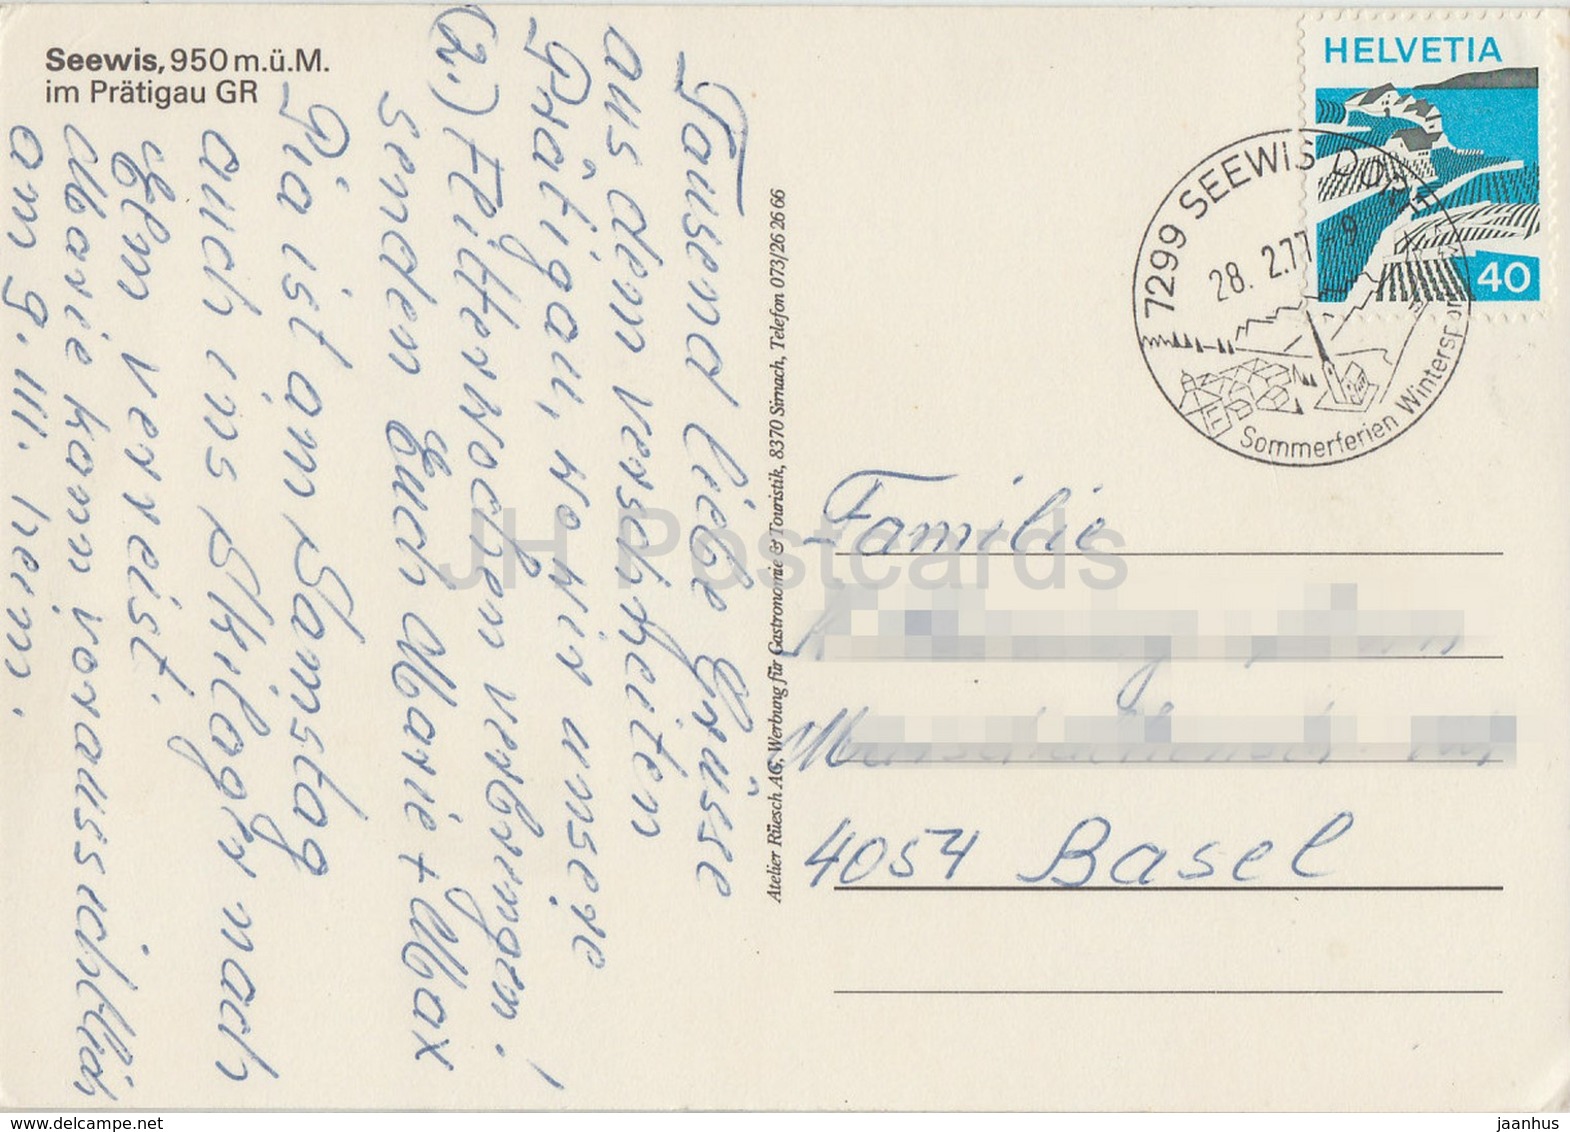 Seewis, 950 m.ü.M.
im Prätigau GR
HELVETIA
40
7299 SEEWIS DORF
28. 2.77-9
Sommerferien Wintersport
Tausend liebe Grüsse
aus dem verschneiten
Prätigau, wo wir unsere
(2.) Flitterwochen verbringen!
senden Euch Marie + Max
Pia ist am Samstag
auch ins Skilager nach
Elm verreist.
Marie kann voraussichtlich
am 9. III. heim.
Atelier Rüesch AG, Werbung für Gastronomie & Touristik, 8370 Sirnach, Telefon 073/26 26 66
Familie
4054 Basel
JH Postcards
www.delcampe.net
jaanhus